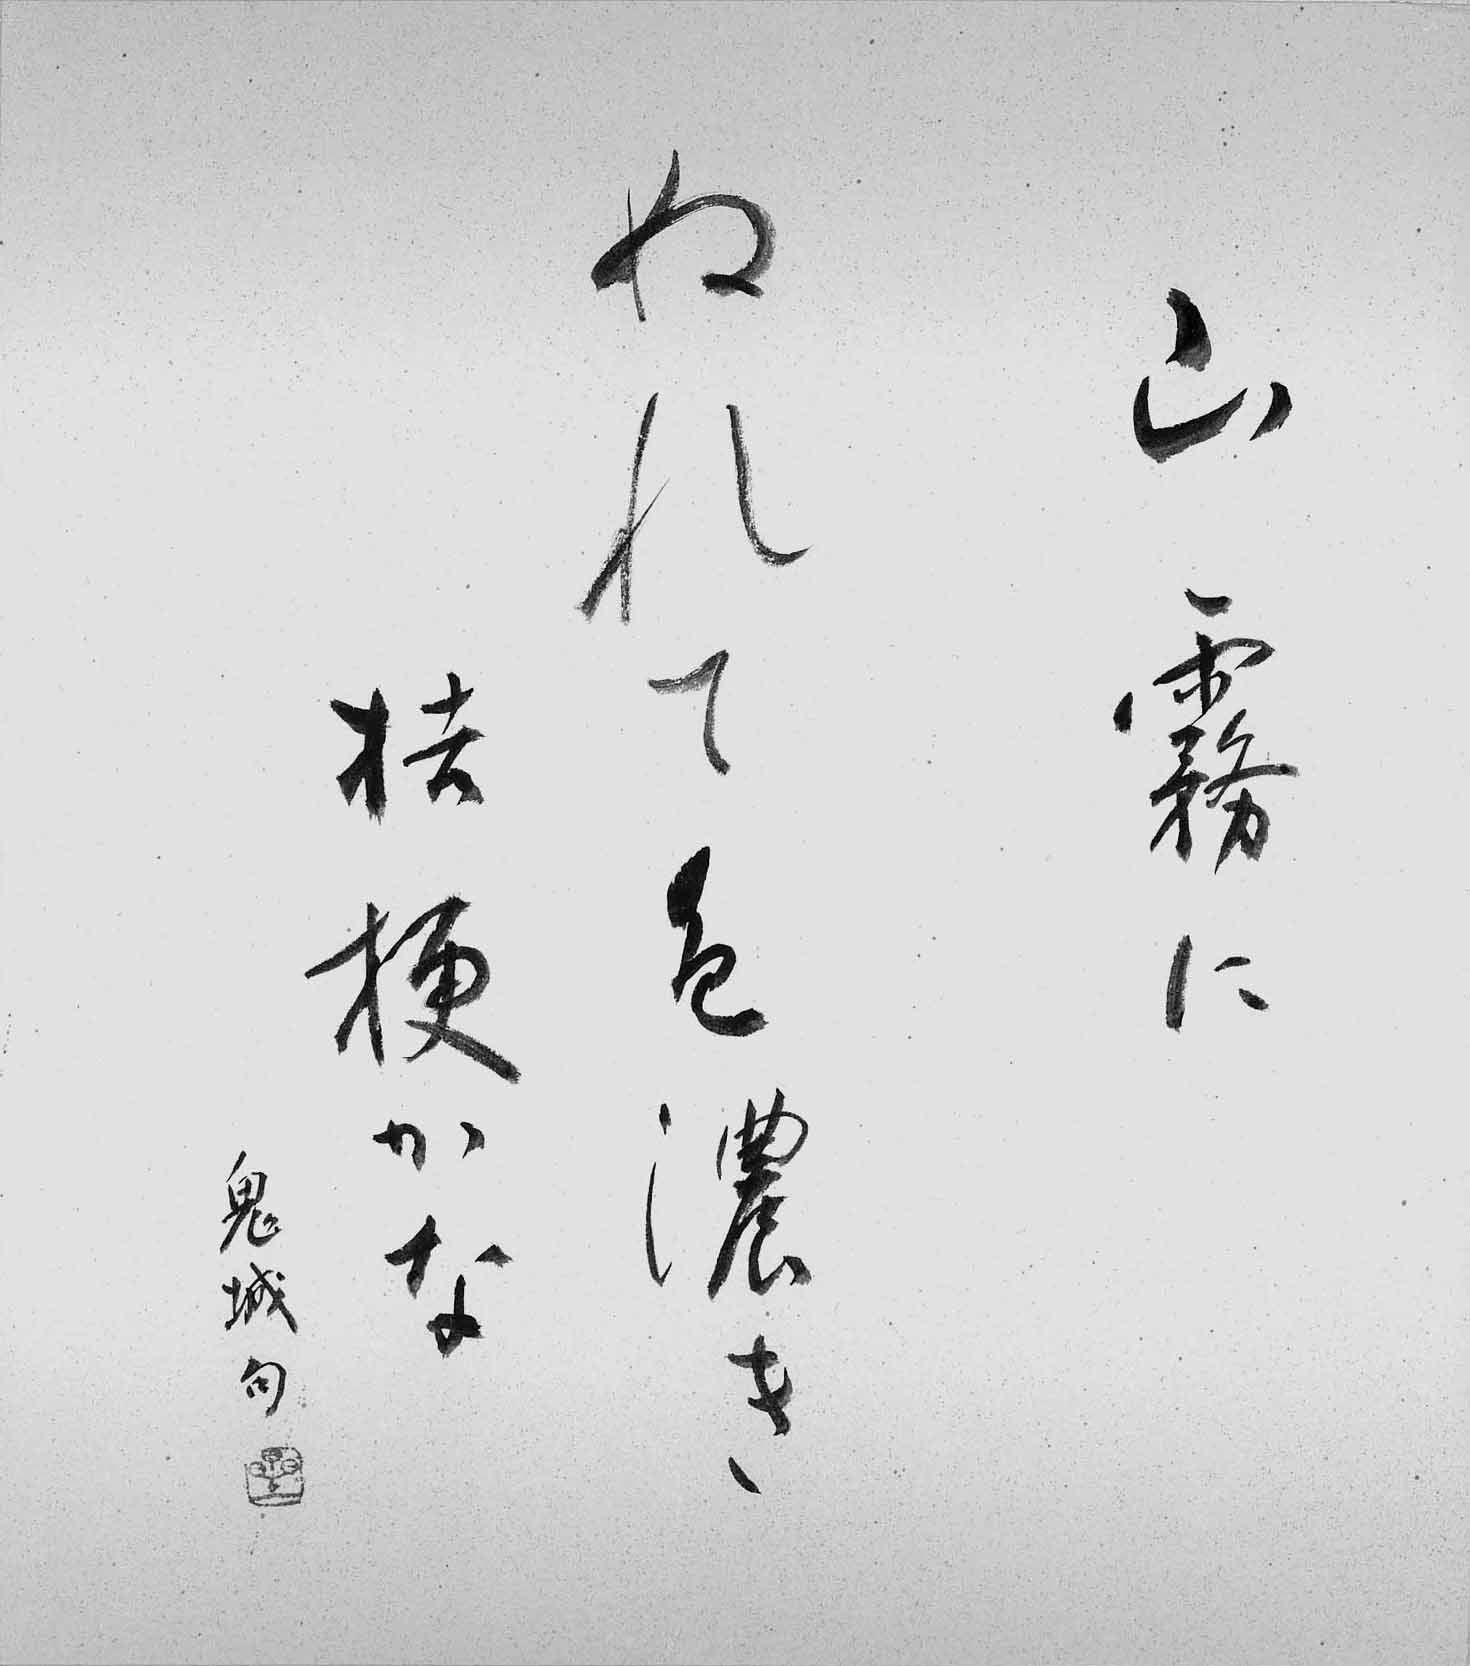 山霧に
ぬれて色濃き
桔梗かな
鬼城句